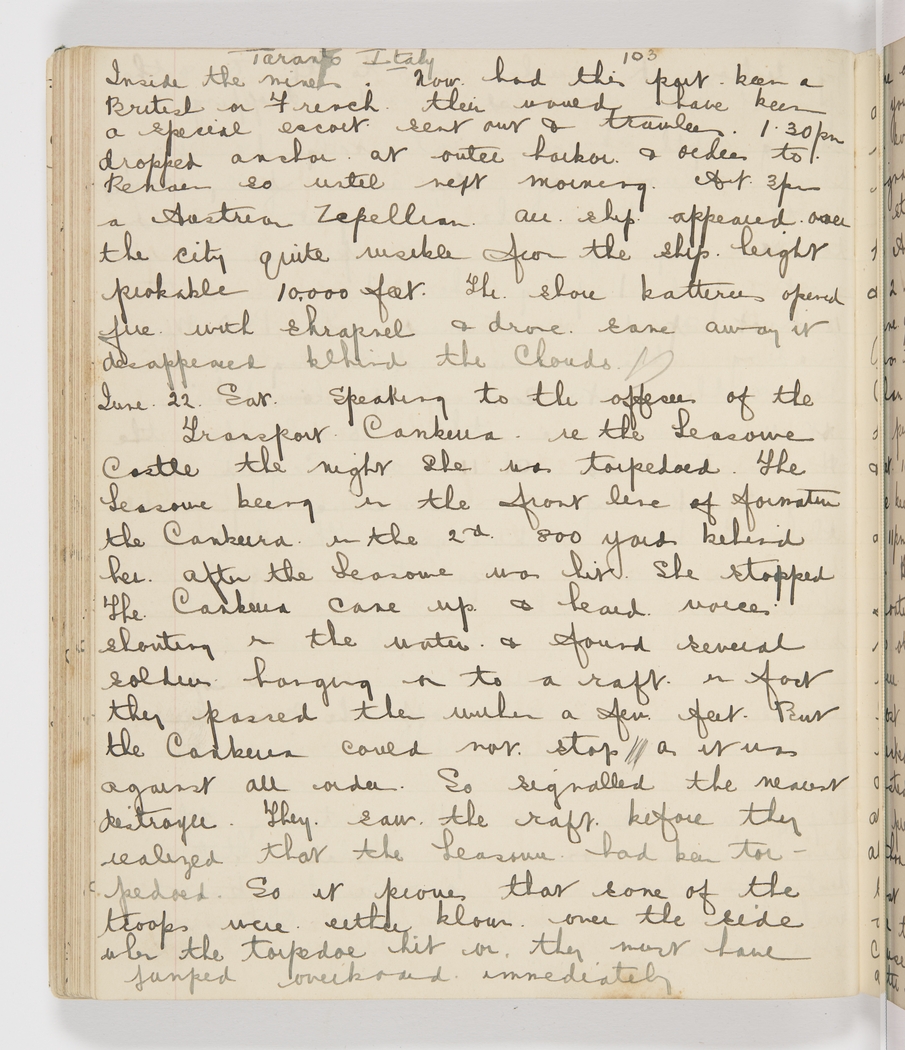 Taranto Italy 103
Inside the mines. Now had this port been a
British or French their would have been
a special escort sent out & trawlers. 1.30pm
dropped anchor at outer harbor. & orders to
Remain so until next morning. At 3pm
a Austrian Zepellian air ship appeared over
the city quite visible from the ship. height
probable 10,000 feet. The shore batteries opened
fire with shrapnel & drove same away it
disappeared behind the Clouds.
June 22 Sat. Speaking to the officers of the
Transport Canberra re the Leasowe
Castle the night She was torpedoed. The
Leasowe being in the front line of formation
the Canberra in the 2nd. 800 yards behind
her. after the Leasowe was hit. She stopped
The Canberra came up & heard voices
shouting in the water. & found several
soldiers hanging on to a raft. in fact
they passed them within a few feet. But
the Canberra could not stop as it was
against all orders. So signalled the nearest
destroyer. They saw the raft before they
realized that the Leasowe had been tor-
pedoed. So it proves that some of the
troops were either blown over the side
when the torpedoe hit or, they must have
jumped overboard immediately